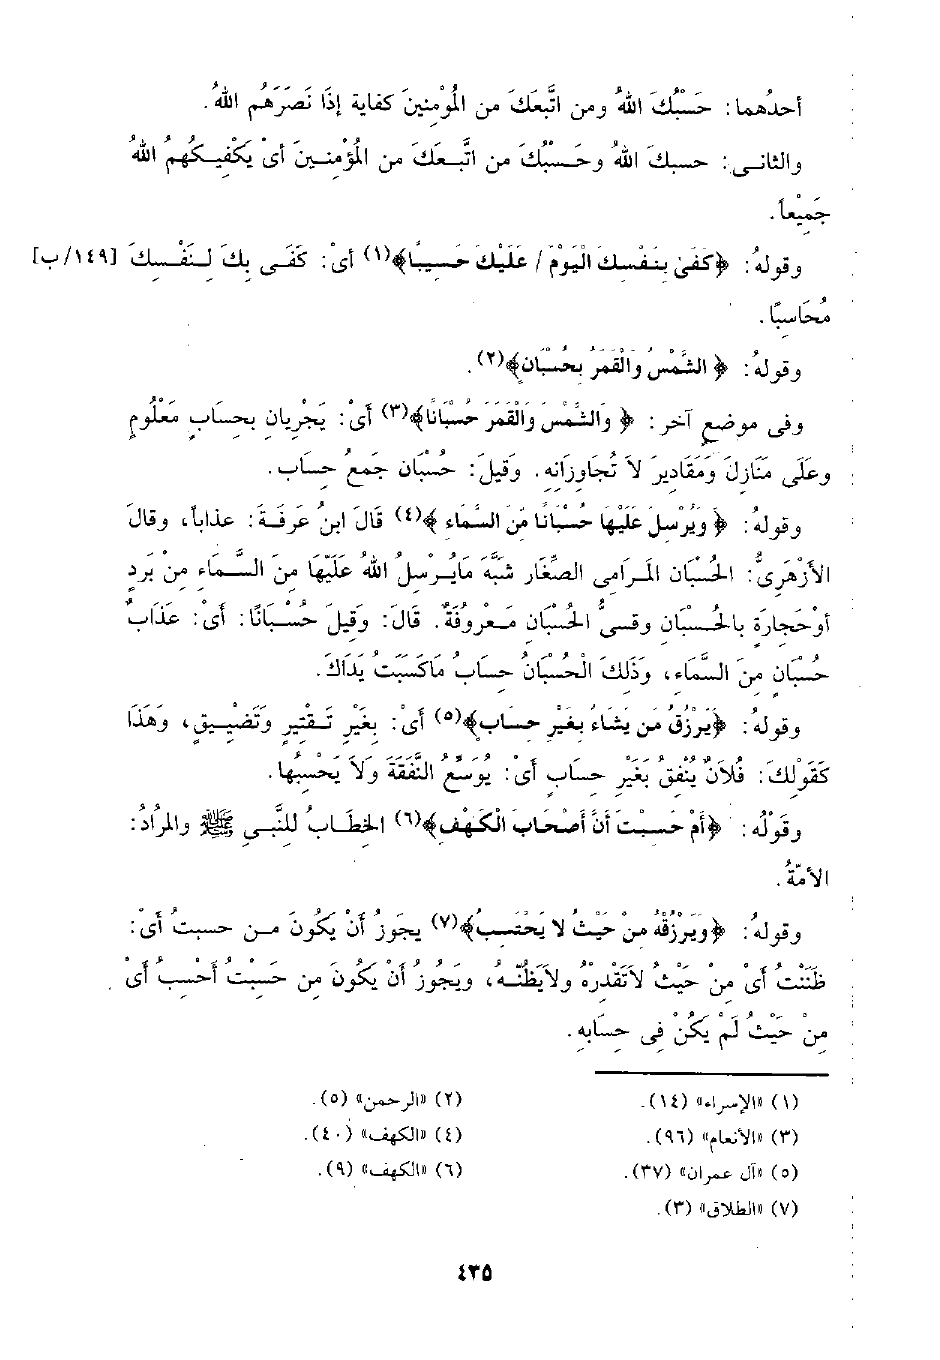 أحدُهما: حَسْبُكَ اللهُ ومن اتَّبعَكَ من المُؤْمنينَ كفاية إذَا نَصَرَهُم اللهُ.
والثانى: حسبكَ اللهُ وحَسْبُكَ من اتَّبعَكَ من المُؤْمنينَ أىْ يَكْفيكهُم اللهُ
جَميْعاً.
وقولهُ: ﴿كَفَىٰ بِنَفْسِكَ الْيَوْمَ / عَلَيْكَ حَسِيبًا﴾(١) أىْ: كَفَى بِكَ لِنَفْسِكَ [١٤٩/ب]
مُحَاسِبًا.
وقولهُ: ﴿الشَّمْسُ وَالْقَمَرُ بِحُسْبَانٍ﴾(٢).
وفى موضعٍ آخر: ﴿وَالشَّمْسَ وَالْقَمَرَ حُسْبَانًا﴾(٣) أىْ: يَجْرِيانِ بِحِسَابٍ مَعْلُومٍ
وعَلَى مَنَازِلَ وَمَقَادِيرَ لاَ تُجَاوِزَانِهِ. وَقيلَ: حُسْبَان جَمعُ حِسَاب.
وقولهُ: ﴿وَيُرْسِلَ عَلَيْهَا حُسْبَانًا مِّنَ السَّمَاءِ﴾(٤) قَالَ ابنُ عَرفَةَ: عذاباً، وقالَ
الأزْهَرِىُّ: الحُسْبَان المرامى الصِّغَار شبَّهَ مايُرْسلُ اللهُ عَلَيْهَا مِنَ السَّمَاءِ مِنْ بَردٍ
أوْحجارَةٍ بالحُسْبَانِ وقسىُّ الحُسْبَانِ مَعْرُوفَةٌ. قَالَ: وَقِيلَ حُسْبَانًا: أىْ: عَذَابَ
حُسْبَانٍ مِنَ السَّمَاءِ، وَذَلكَ الْحُسْبَانُ حسَابُ مَاكَسَبَتْ يَدَاكَ.
وقولهُ: ﴿يَرْزُقُ مَن يَشَاءُ بِغَيْرِ حِسَابٍ﴾(٥) أىْ: بِغَيْرِ تَقْتِيرٍ وَتَضْيِيقٍ، وَهَذَا
كَقَوْلكَ: فُلاَنٌ يُنْفِقُ بَغَيْرِ حسابٍ أىْ: يُوَسِّعُ النَّفَقَةَ وَلاَ يَحْسِبُها.
وقَوْلُه: ﴿أَمْ حَسِبْتَ أَنَّ أَصْحَابَ الْكَهْفِ﴾(٦) الخطَابُ للنَّبىِ ﷺ والمرُادُ:
الأمّةُ.
وقولهُ: ﴿وَيَرْزُقْهُ مِنْ حَيْثُ لا يَحْتَسِبُ﴾(٧) يجوزُ أنْ يكُونَ من حسبتُ أىْ:
ظَنَنْتُ أىْ منْ حَيْثُ لاَتَقْدرُهُ ولاَيَظُنُّهُ، ويَجُوزُ أنْ يَكُونَ مِن حَسَبْتُ أحْسِبُ أىْ
مِنْ حَيْثُ لَمْ يَكُنْ فِى حِسَابِهِ.
(١) «الإسراء» (١٤).
(٢) «الرحمن» (٥).
(٣) «الأنعام» (٩٦).
(٤) «الكهف» (٤٠).
(٥) «آل عمران» (٣٧).
(٦) «الكهف» (٩).
(٧) «الطلاق» (٣).
٤٣٥